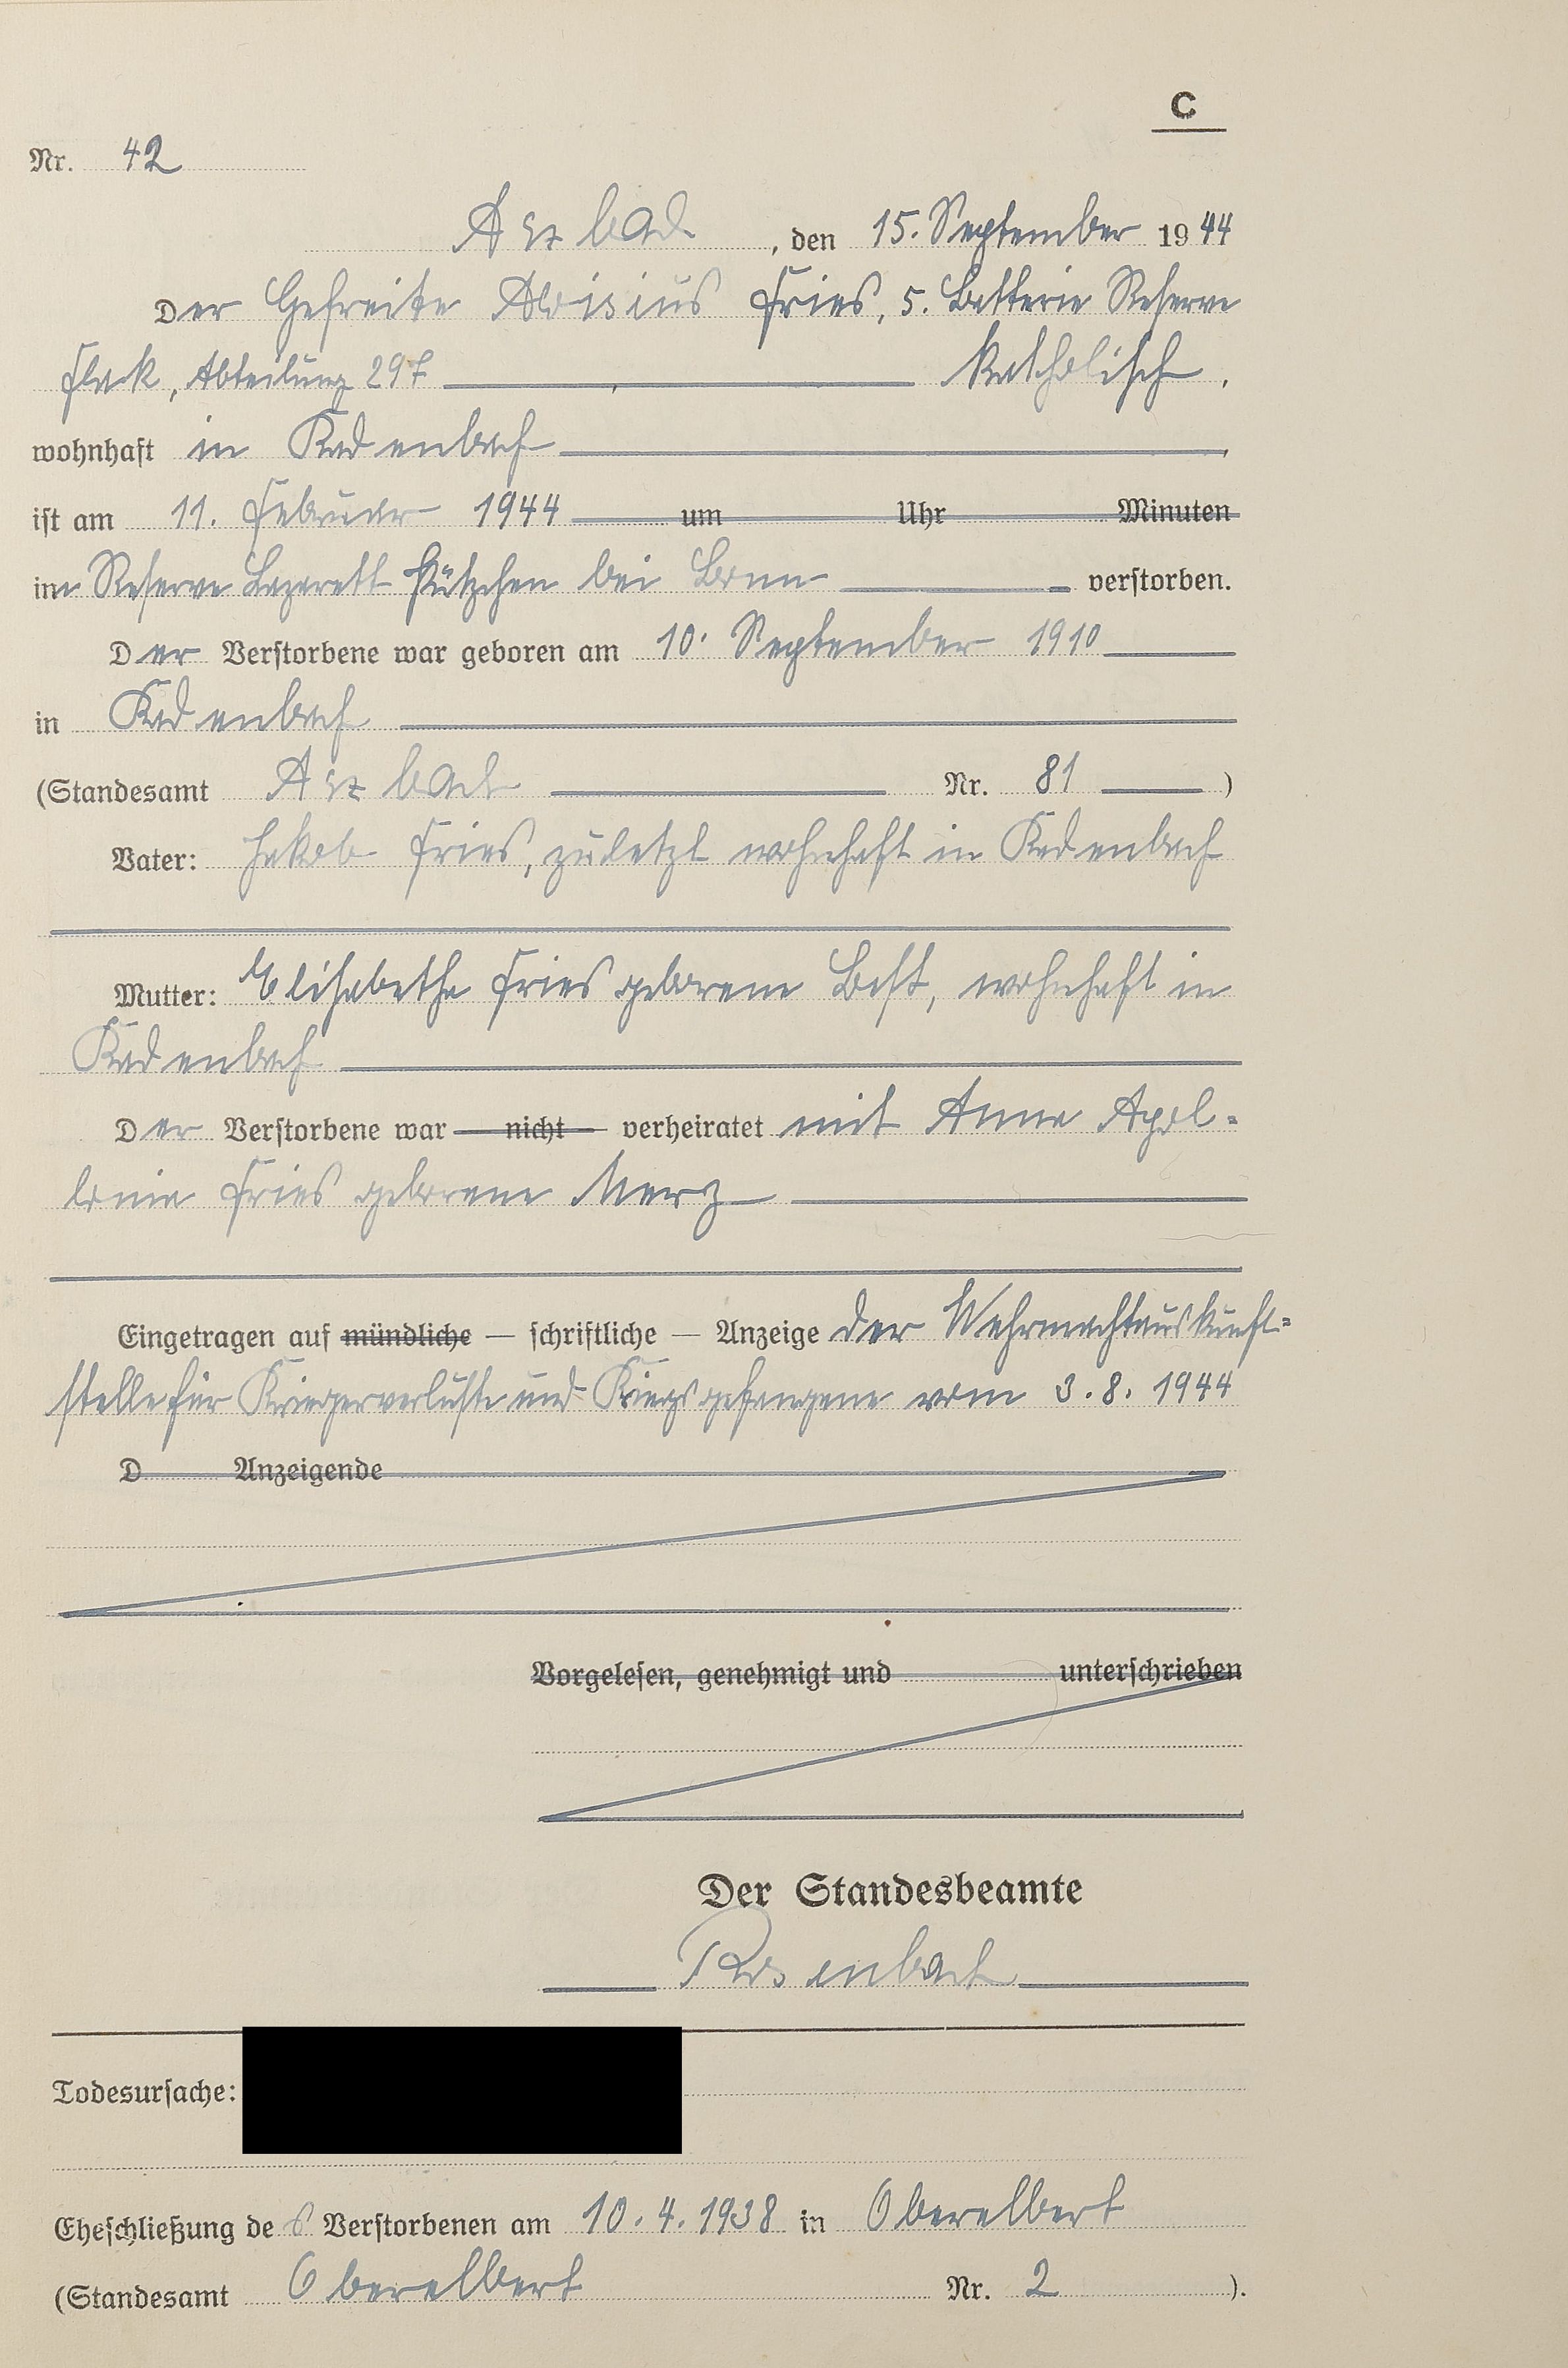 C
Nr. 42
Arzbach, den 15. September 1944
Der Gefreite Aloisius Fries, 5. Batterie Reserve
Flak, Abteilung 297 katholisch,
wohnhaft in Kadenbach,
ist am 11. Februar 1944 um Uhr Minuten
im Reserve Lazarett Pützchen bei Bonn verstorben.
Der Verstorbene war geboren am 10. September 1910
in Kadenbach
(Standesamt Arzbach Nr. 81 )
Vater: Jakob Fries, zuletzt wohnhaft in Kadenbach
Mutter: Elisabetha Fries geborene Best, wohnhaft in
Kadenbach
Der Verstorbene war nicht verheiratet mit Anna Apol=
lonia Fries geborene Merz
Eingetragen auf mündliche — schriftliche — Anzeige der Wehrmachtauskunft=
stelle für Kriegerverluste und Kriegsgefangene vom 3.8.1944
D Anzeigende
Vorgelesen, genehmigt und unterschrieben
Der Standesbeamte
Rosenbach
Todesursache:
Eheschließung des Verstorbenen am 10.4.1938 in Oberelbert
(Standesamt Oberelbert Nr. 2 ).